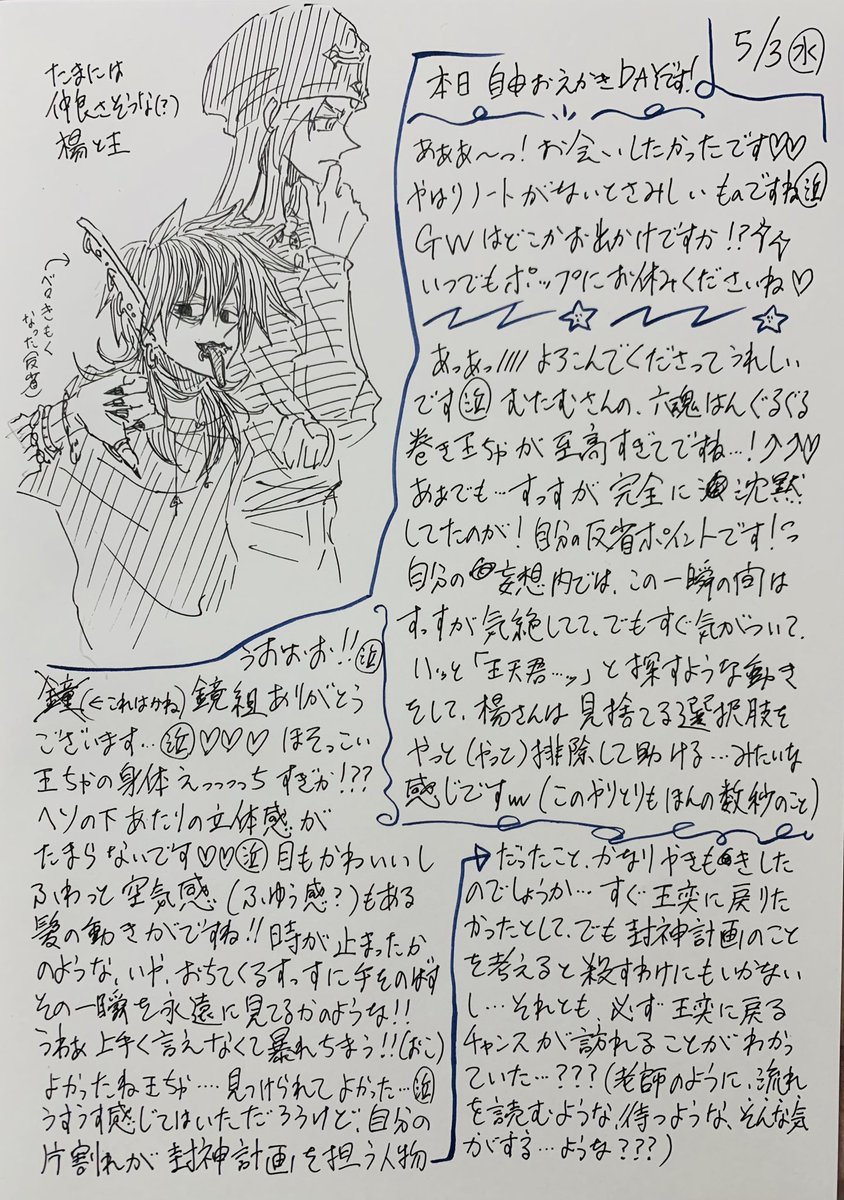 5/3㊌
本日 自由おえかきDAYです!
たまには
仲良さそうな(?)
楊と王
ベロきもく
なった(反省)
あぁあ〜っ! お会いしたかったです♡♡
やはりノートがないとさみしいものですね㊣
GWはどこかお出かけですか!?
いつでもポップにお休みくださいね♡
あっあっ//// よろこんでくださってうれしい
です むたむさんの、六魂はんぐるぐる
巻き王ちゃが至高すぎてですね…!♡
あぁでも…すっすが完全に沈黙
してたのが! 自分の反省ポイントです!
自分の妄想内では、この一瞬の間は
すっすが気絶してて、でもすぐ気がついて、
ハッと「王天君…ッ」と探すような動き
をして、楊さんは見捨てる選択肢を
やっと(やって)排除して助ける…みたいな
感じですw (このやりとりもほんの数秒のこと)
うおおお!!
鐘(←これはかね) 鏡組ありがとう
ございます…♡♡♡ ほそっこい
王ちゃの身体えっっっっちすぎか!??
ヘソの下あたりの立体感が
たまらないです♡♡ 目もかわいいし
ふわっと空気感(ふゆう感?)もある
髪の動きがですね!! 時が止まったか
のような、いや、おちてくるすっすに手をのばす
その一瞬を永遠に見てるかのような!!
うわぁ上手く言えなくて暴れちまう!!(おこ)
よかったね王ちゃ…. 見つけられてよかった…
うすうす感じてはいただろうけど、自分の
片割れが封神計画を担う人物
だったこと、かなりやきもきした
のでしょうか… すぐ王奕に戻りた
かったとして、でも封神計画のこと
を考えると殺すわけにもいかない
し… それとも、必ず王奕に戻る
チャンスが訪れることがわかっ
ていた…??? (老師のように、流れ
を読むような、待つような、そんな気
がする…ような???)